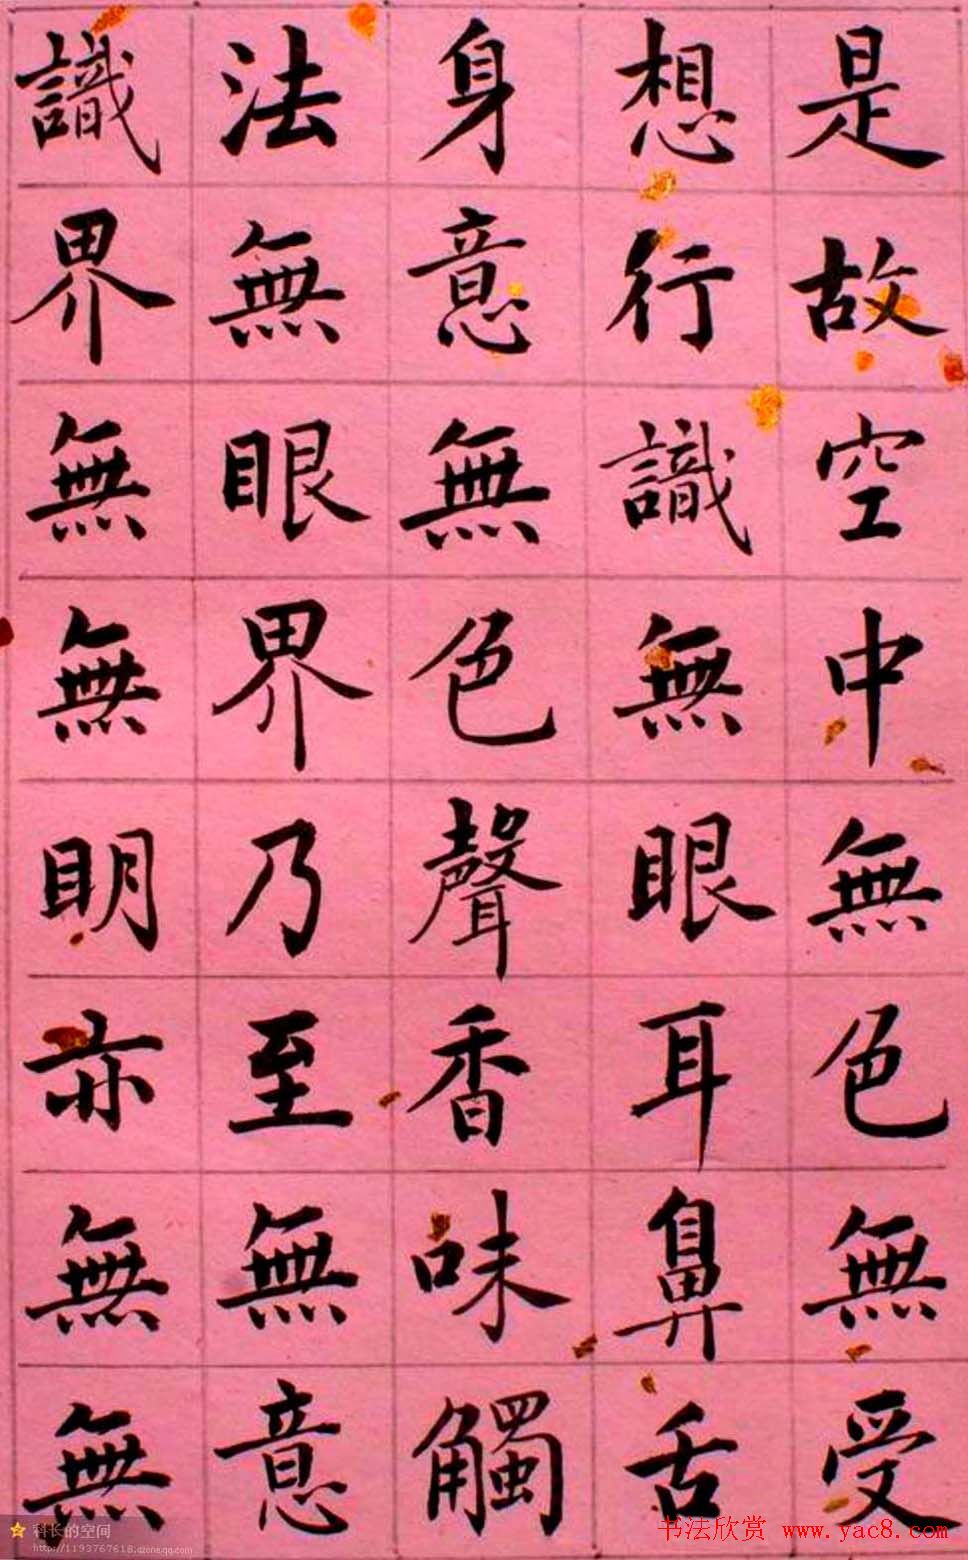 是故空中無色無受
想行識無眼耳鼻舌
身意無色聲香味觸
法無眼界乃至無意
識界無無明亦無無
科长的空间
http://1193767618.qzone.qq.com
书法欣赏 www.yac8.com